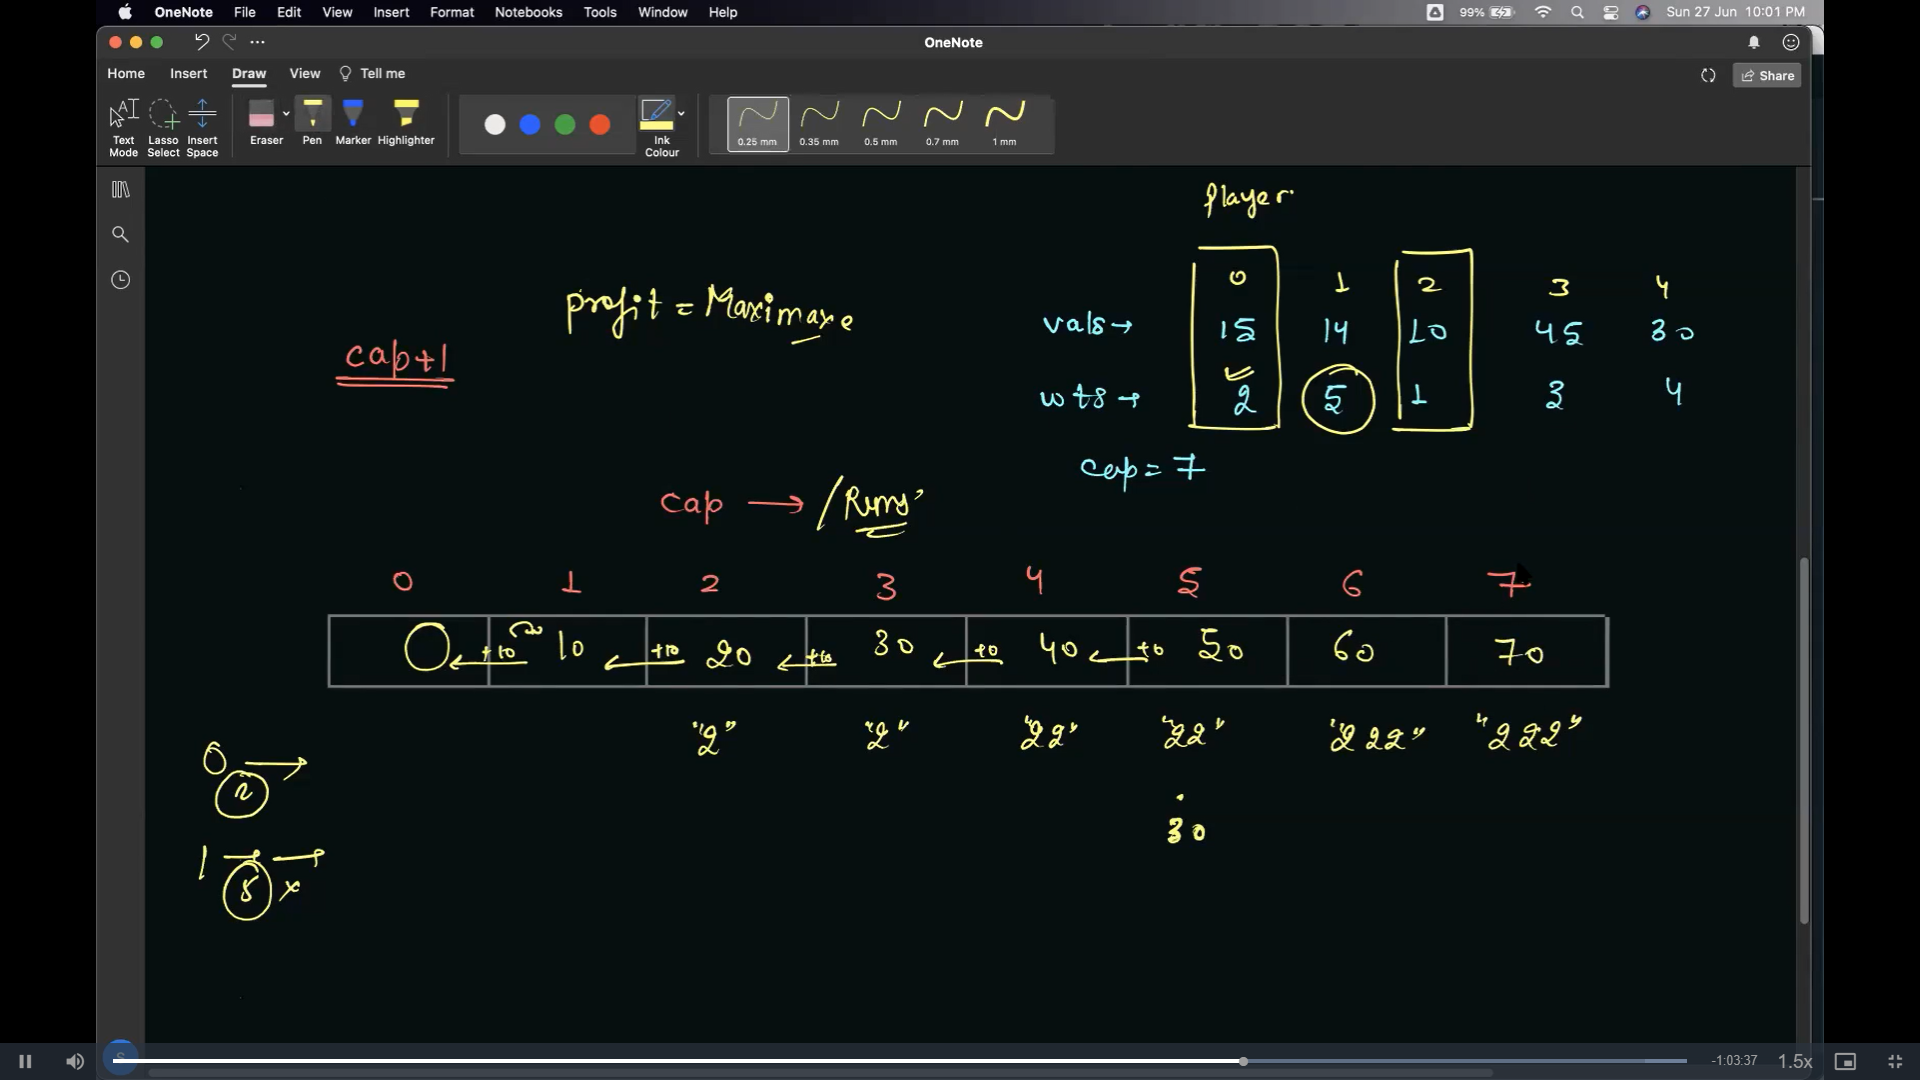 OneNote File Edit View Insert Format Notebooks Tools Window Help 99% Sun 27 Jun 10:01 PM
OneNote
Home Insert Draw View Tell me Share
Text Mode Lasso Select Insert Space Eraser Pen Marker Highlighter Ink Colour 0.25 mm 0.35 mm 0.5 mm 0.7 mm 1 mm
Player
0 1 2 3 4
profit = Maximaxe
vals → 15 14 10 45 30
cap+1
wts → 2 5 1 3 4
cap = 7
cap → / Runs
0 1 2 3 4 5 6 7
0 +10 10 +10 20 +10 30 +0 40 +0 50 60 70
"2" "2" "22" "22" "222" "222"
0 →
2
30
1 → →
5 x
S -1:03:37 1.5x